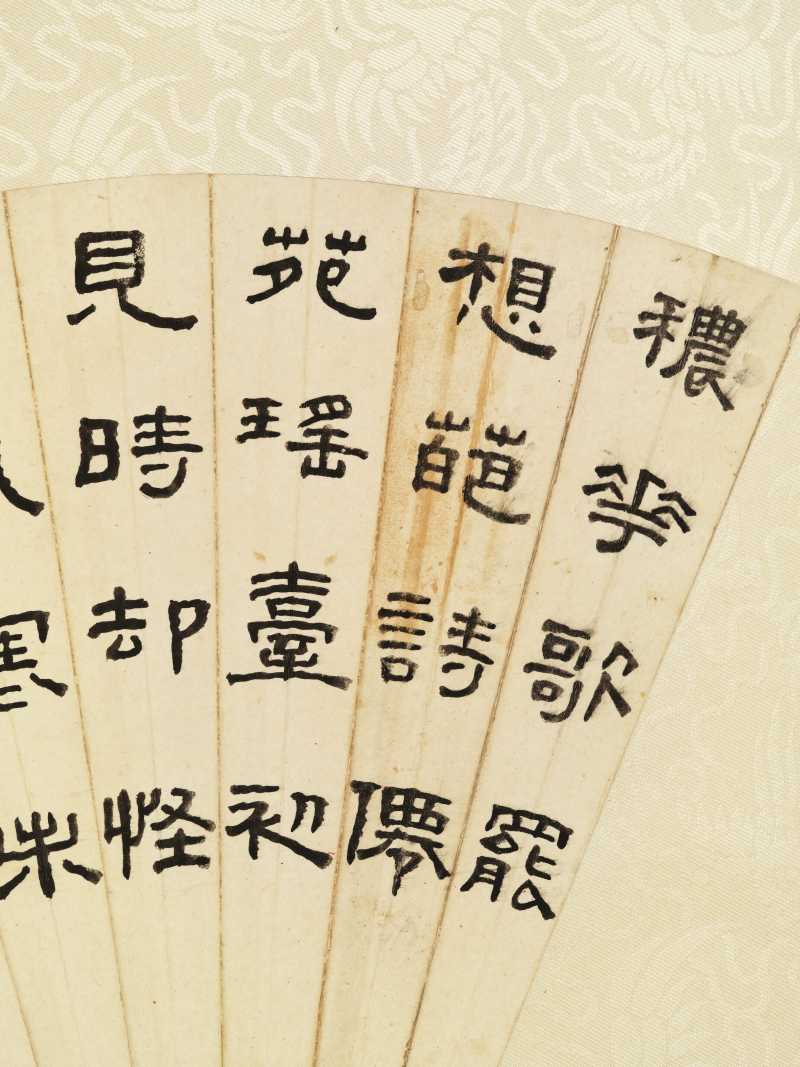 穠華歌罷
想葩詩僊
苑瑤臺初
見時却怪